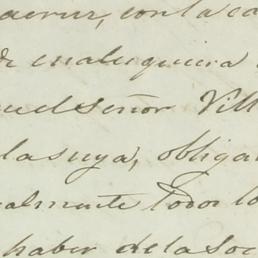 acruz, con la ca
de cualesquiera
el señor Vill
la suya, obligan
almente todos lo
haber de la soc